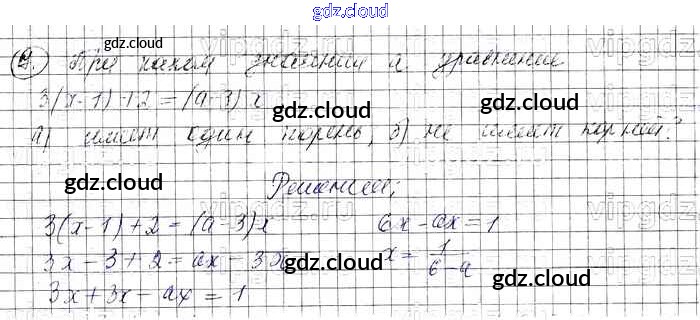 gdz.cloud
9. При каком значении а уравнение
3(x-1)+2=(a-3)x
а) имеет один корень, б) не имеет корней?
Решение;
3(x-1)+2=(a-3)x 6x-ax=1
3x-3+2=ax-3x x=1/(6-a)
3x+3x-ax=1
gdz.cloud
gdz.cloud
gdz.cloud
gdz.cloud
gdz.cloud
gdz.cloud
gdz.cloud
gdz.cloud
vipgdz.ru